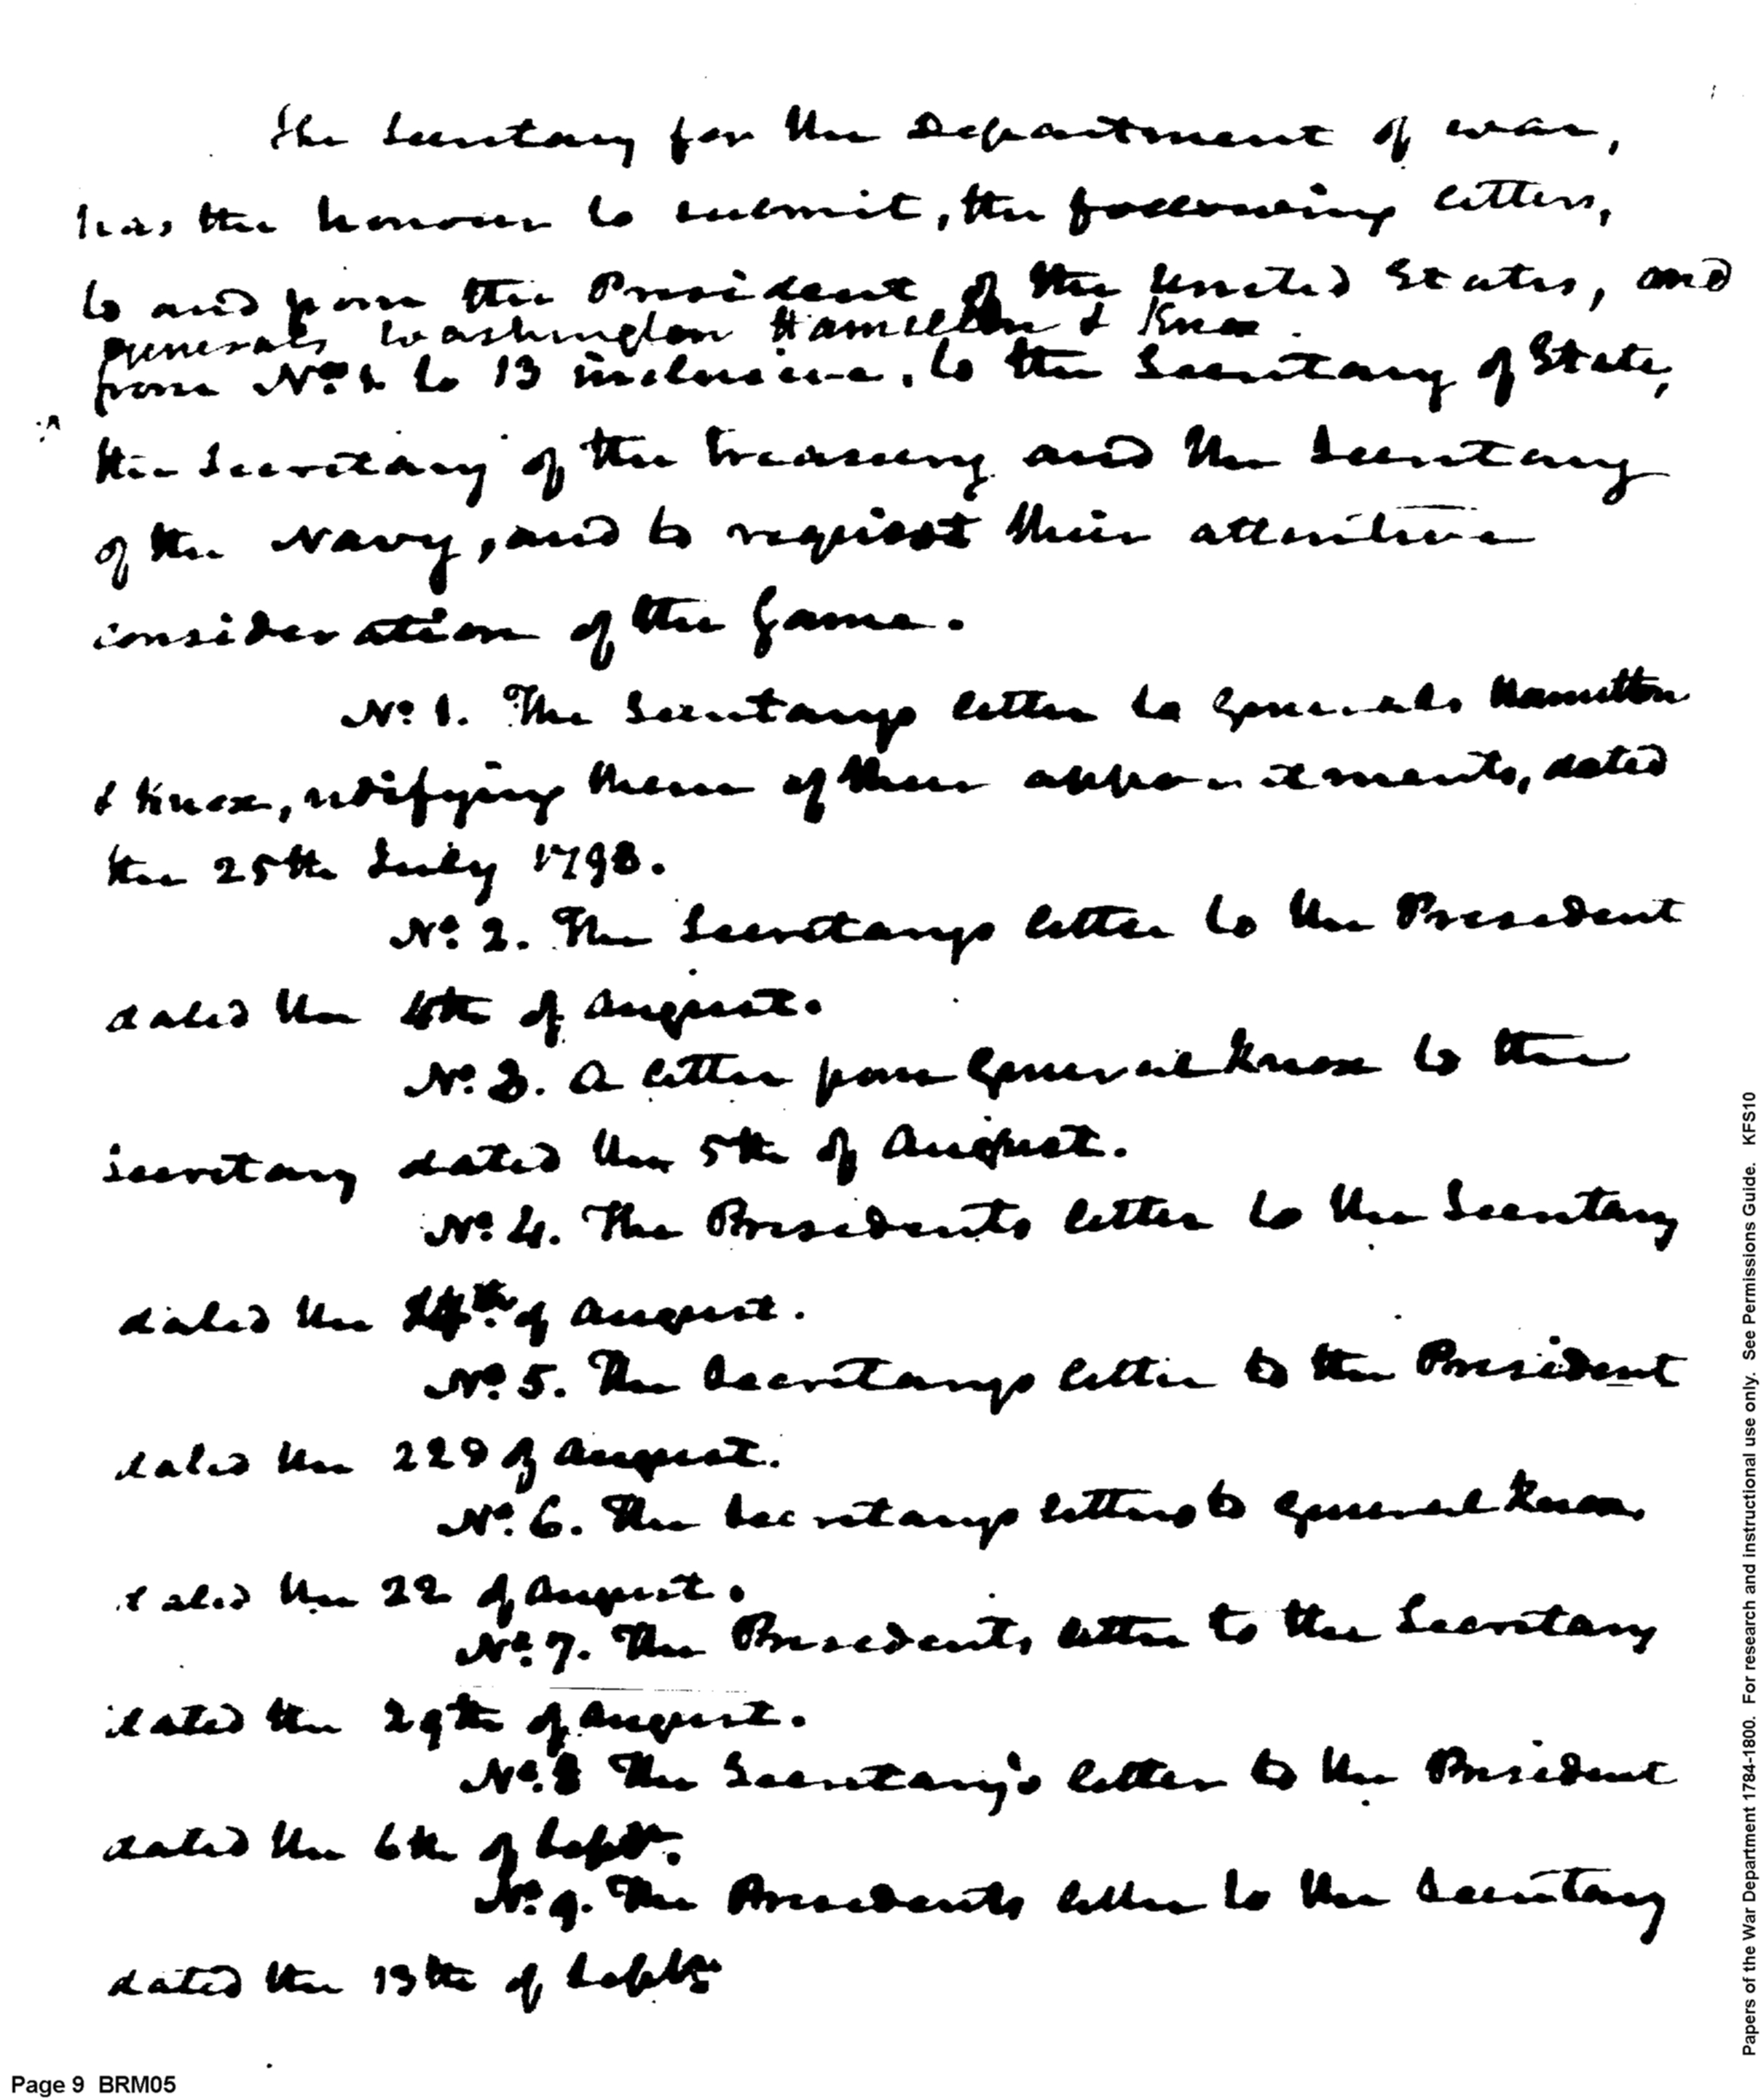 The Secretary for the Department of war,
has the honour to submit, the following letters,
to and from the President of the United States, and
Generals Washington Hamilton & Knox
from No. 1 to 13 inclusive, to the Secretary of State,
the Secretary of the Treasury and the Secretary
of the Navy, and to request their attentive
consideration of the same.
No. 1. The Secretarys letter to Generals Hamilton
& Knox, notifying them of their appointments, dated
the 25th July 1798.
No. 2. The Secretarys letter to the President
dated the 4th of August.
No. 3. A letter from General Knox to the
Secretary dated the 5th of August.
No. 4. The Presidents letter to the Secretary
dated the 14th. of August.
No. 5. The Secretarys letter to the President
dated the 22d of August.
No. 6. The Secretarys letters to General Knox
dated the 22 of August.
No. 7. The Presidents letter to the Secretary
dated the 29th of August.
No. 8 The Secretary's letter to the President
dated the 6th of Septr.
No. 9. The Presidents letter to the Secretary
dated the 13th of Septbr
Page 9 BRM05
Papers of the War Department 1784-1800. For research and instructional use only. See Permissions Guide. KFS10